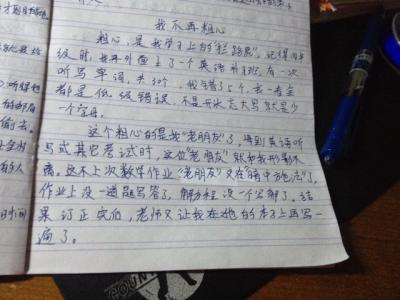 我不再粗心
粗心,是我学习上的"拦路虎"。记得四年
级时,我在外面上了一个英语补习班,有一次
听写单词,共30个,我错了5个,去一看全
都是低级错误,不是开头忘大写就是少
一个字母。
这个粗心的是我"老朋友"了,每到英语听
写或其它考试时,这位"老朋友"就和我形影不
离。这不上次数学作业"老朋友"又在"暗中施法"了,
作业上没一道题写答了,解方程没一个写解了。结
果订正完后,老师又让我在她的本子上再写一
遍了。